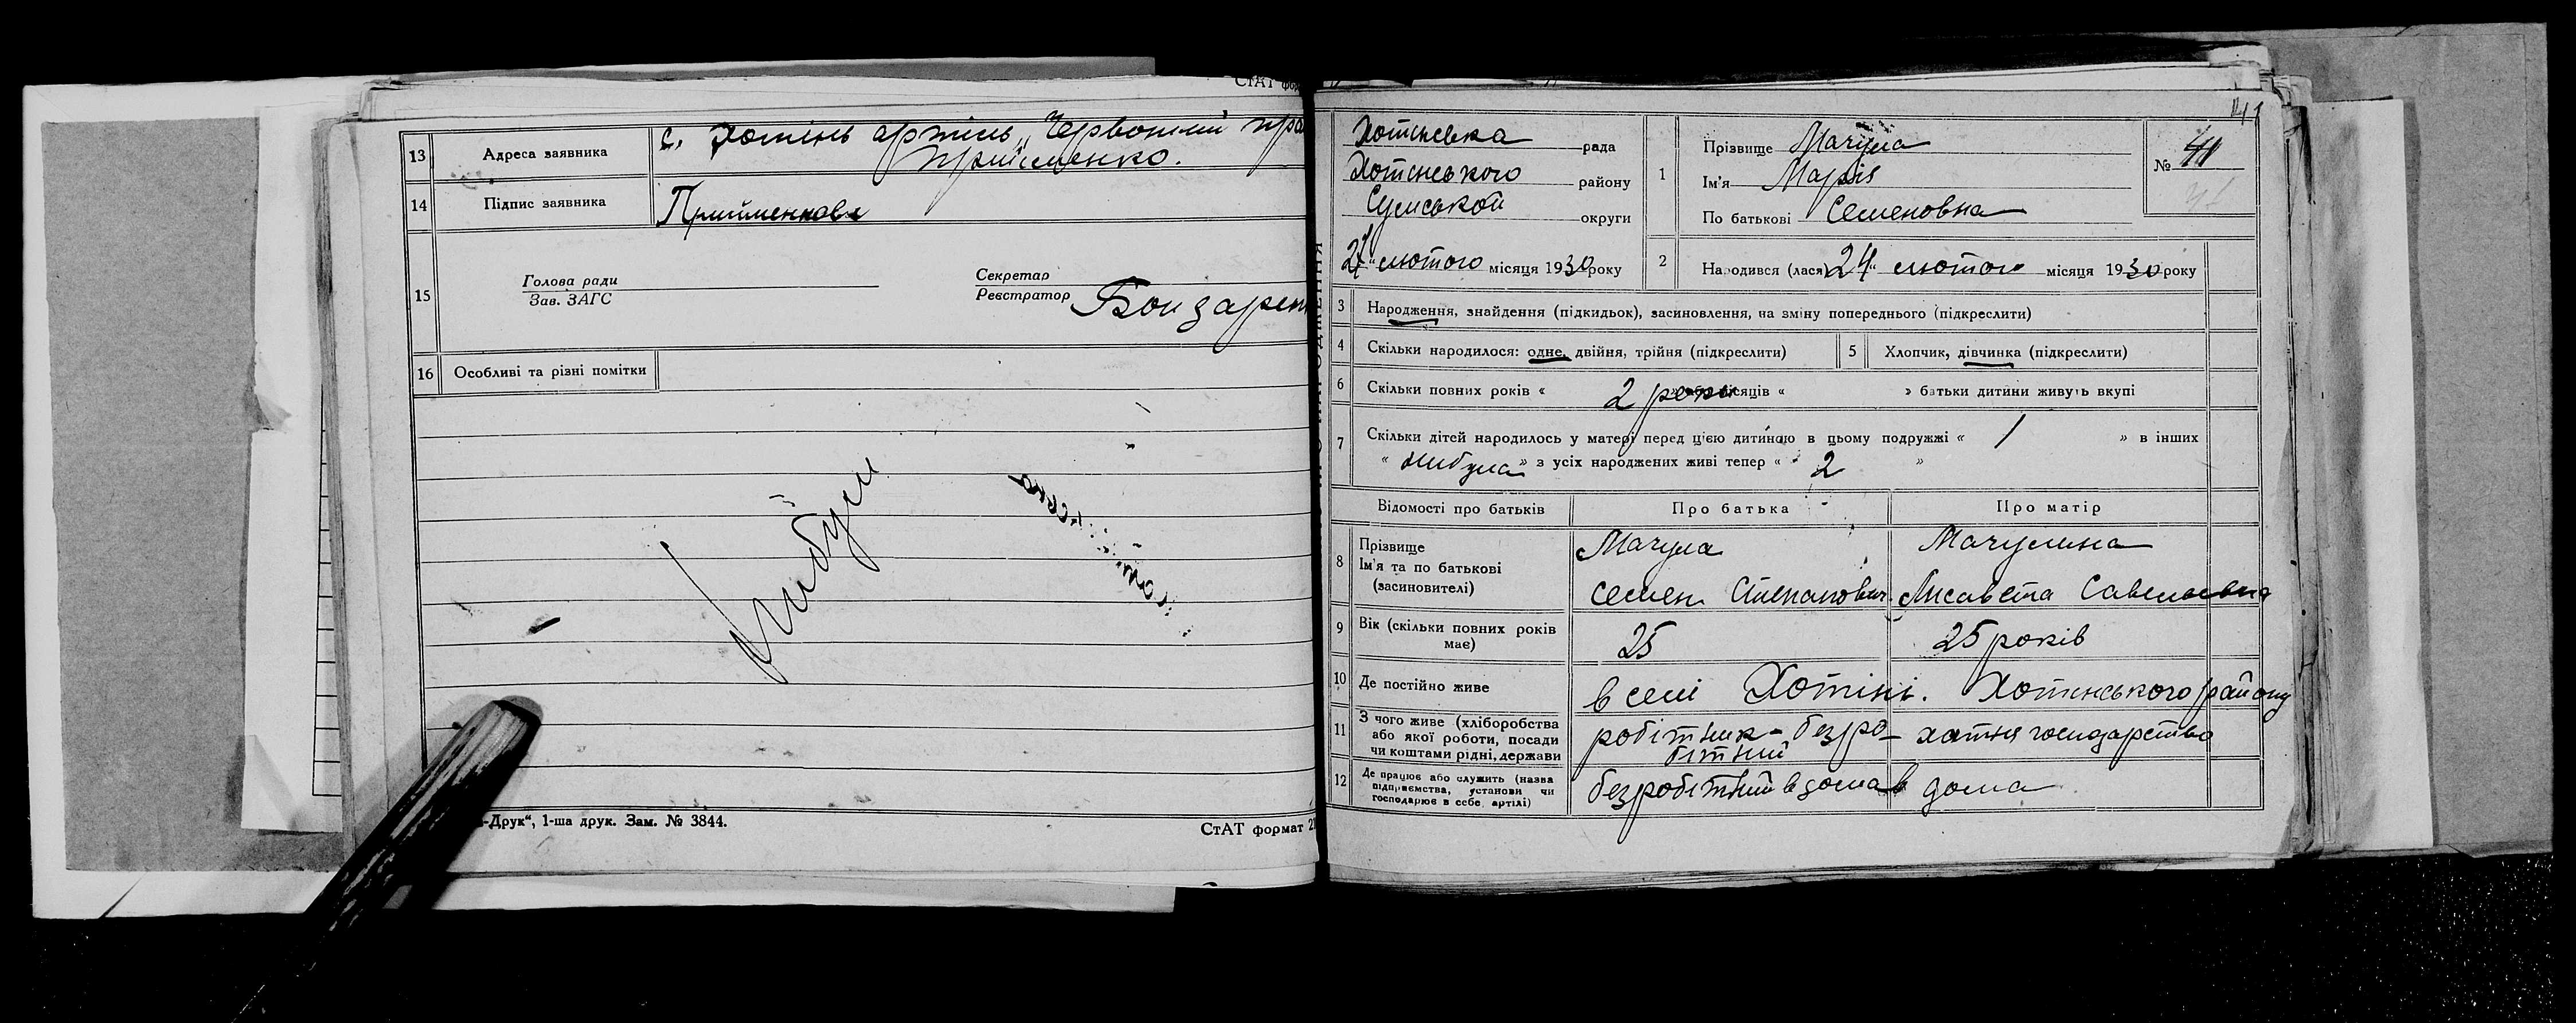 СтАТ
13 Адреса заявника с. Хотінь артіль „Червоний пра
Прийменко.
14 Підпис заявника Прийменкова
15 Голова ради
Зав. ЗАГС
Секретар
Реєстратор Бондарен
16 Особливі та різні помітки
-Друк“, 1-ша друк. Зам. № 3844.
СтАТ формат
41
Хотінська рада
Хотінського району
Сумської округи
лютого місяця 1930 року
1 Прізвище Мачула
Ім'я Марія
По батькові Семеновна
№ 41
2 Народився (лася) 24 „ лютого місяця 1930 року
3 Народження, знайдення (підкидьок), засиновлення, на зміну попереднього (підкреслити)
4 Скільки народилося: одне, двійня, трійня (підкреслити) 5 Хлопчик, дівчинка (підкреслити)
6 Скільки повних років « 2 роки місяців « » батьки дитини живуть вкупі
7 Скільки дітей народилось у матері перед цією дитиною в цьому подружжі « 1 » в інших
« небула » з усіх народжених живі тепер « 2 »
Відомості про батьків Про батька Про матір
8 Прізвище Мачула Мачулина
Ім'я та по батькові
(засиновителі) Семен Степанович Лисавета Савельевна
9 Вік (скільки повних років має) 25 25 років
10 Де постійно живе в селі Хотіні. Хотінського району
11 З чого живе (хліборобства
або якої роботи, посади
чи коштами рідні, держави робітник - безробітний хатня господарство
12 Де працює або служить (назва
підприємства, установи чи
господарює в себе, артілі) безробітний вдома в дома